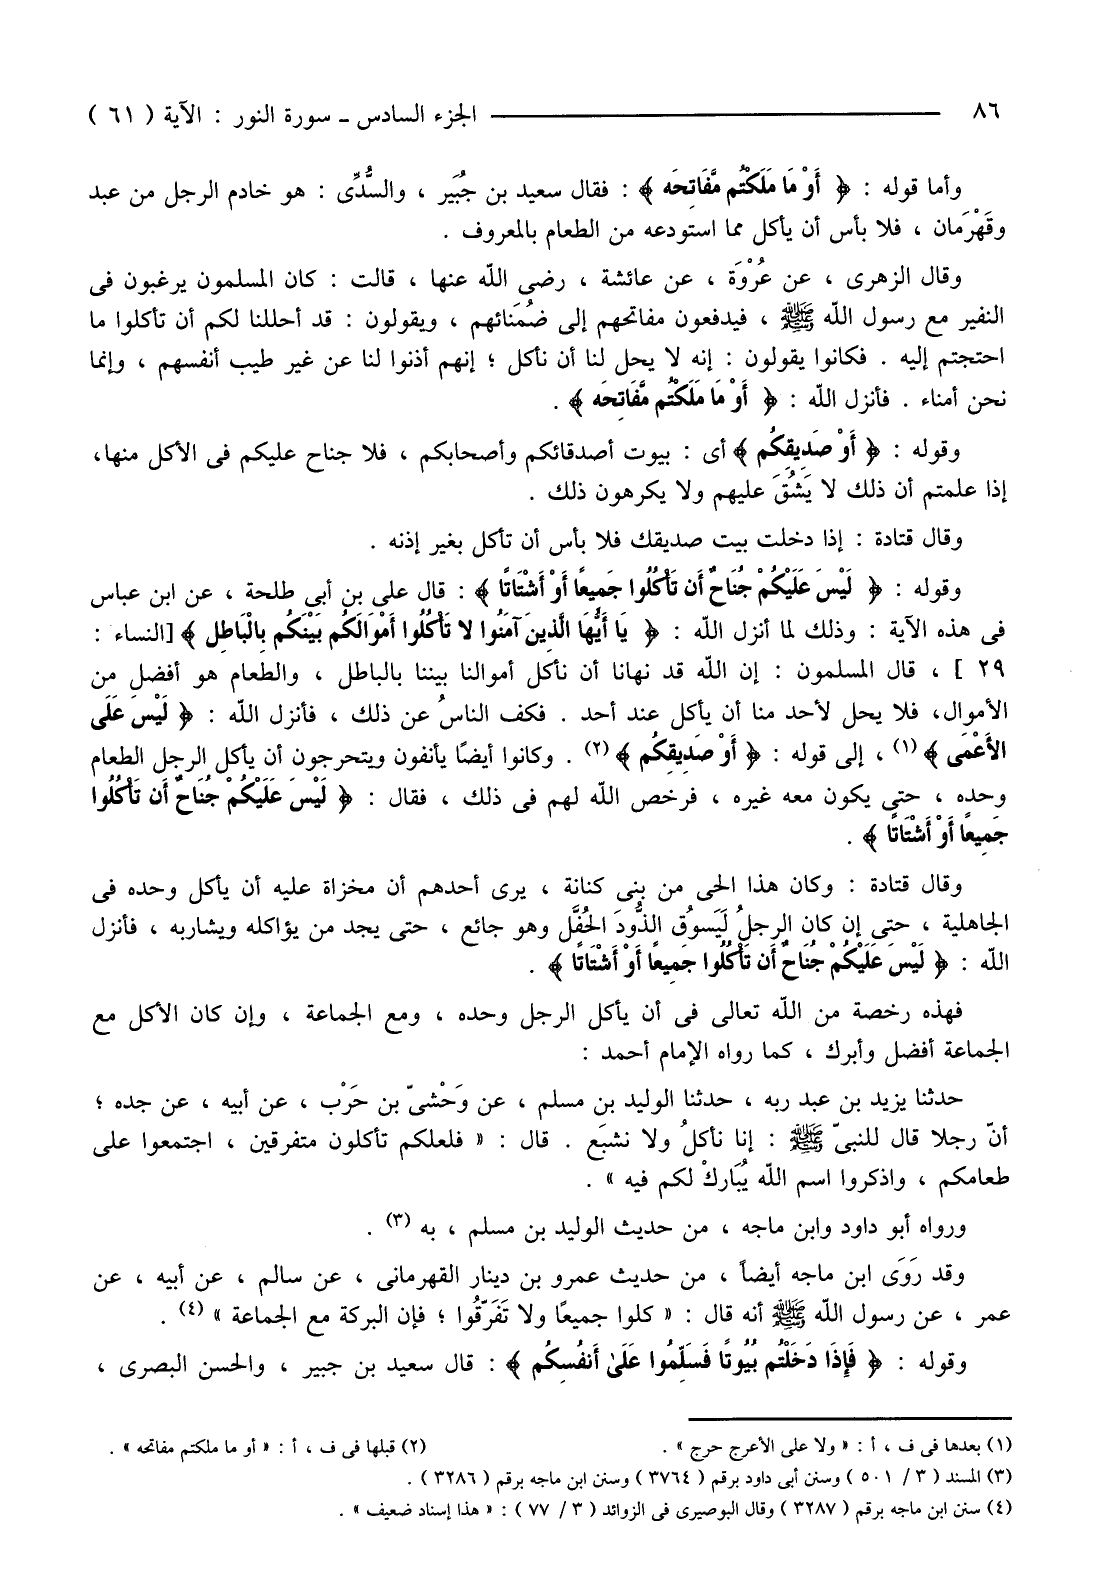 ٨٦ الجزء السادس ـ سورة النور : الآية ( ٦١ )
وأما قوله : ﴿ أَوْ مَا مَلَكْتُم مَّفَاتِحَه ﴾ : فقال سعيد بن جُبَير ، والسُّدِّى : هو خادم الرجل من عبد
وقَهْرَمان ، فلا بأس أن يأكل مما استودعه من الطعام بالمعروف .
وقال الزهرى ، عن عُرْوَة ، عن عائشة ، رضى الله عنها ، قالت : كان المسلمون يرغبون فى
النفير مع رسول الله ﷺ ، فيدفعون مفاتحهم إلى ضُمَنائهم ، ويقولون : قد أحللنا لكم أن تأكلوا ما
احتجتم إليه . فكانوا يقولون : إنه لا يحل لنا أن نأكل ؛ إنهم أذنوا لنا عن غير طيب أنفسهم ، وإنما
نحن أمناء . فأنزل الله : ﴿ أَوْ مَا مَلَكْتُم مَّفَاتِحَه ﴾ .
وقوله : ﴿ أَوْ صَدِيقِكُم ﴾ أى : بيوت أصدقائكم وأصحابكم ، فلا جناح عليكم فى الأكل منها،
إذا علمتم أن ذلك لا يَشُقَ عليهم ولا يكرهون ذلك .
وقال قتادة : إذا دخلت بيت صديقك فلا بأس أن تأكل بغير إذنه .
وقوله : ﴿ لَيْسَ عَلَيْكُمْ جُنَاحٌ أَن تَأْكُلُوا جَمِيعًا أَوْ أَشْتَاتًا ﴾ : قال على بن أبى طلحة ، عن ابن عباس
فى هذه الآية : وذلك لما أنزل الله : ﴿ يَا أَيُّهَا الَّذِينَ آمَنُوا لا تَأْكُلُوا أَمْوَالَكُم بَيْنَكُم بِالْبَاطِلِ ﴾ [النساء :
٢٩ ] ، قال المسلمون : إن الله قد نهانا أن نأكل أموالنا بيننا بالباطل ، والطعام هو أفضل من
الأموال، فلا يحل لأحد منا أن يأكل عند أحد . فكف الناسُ عن ذلك ، فأنزل الله : ﴿ لَيْسَ عَلَى
الأَعْمَى ﴾ (١) ، إلى قوله : ﴿ أَوْ صَدِيقِكُم ﴾ (٢) . وكانوا أيضًا يأنفون ويتحرجون أن يأكل الرجل الطعام
وحده ، حتى يكون معه غيره ، فرخص الله لهم فى ذلك ، فقال : ﴿ لَيْسَ عَلَيْكُمْ جُنَاحٌ أَن تَأْكُلُوا
جَمِيعًا أَوْ أَشْتَاتًا ﴾ .
وقال قتادة : وكان هذا الحى من بنى كنانة ، يرى أحدهم أن مخزاة عليه أن يأكل وحده فى
الجاهلية ، حتى إن كان الرجلُ لَيَسوُق الذُّودَ الحُفَّل وهو جائع ، حتى يجد من يؤاكله ويشاربه ، فأنزل
الله : ﴿ لَيْسَ عَلَيْكُمْ جُنَاحٌ أَن تَأْكُلُوا جَمِيعًا أَوْ أَشْتَاتًا ﴾ .
فهذه رخصة من الله تعالى فى أن يأكل الرجل وحده ، ومع الجماعة ، وإن كان الأكل مع
الجماعة أفضل وأبرك ، كما رواه الإمام أحمد :
حدثنا يزيد بن عبد ربه ، حدثنا الوليد بن مسلم ، عن وَحْشىّ بن حَرْب ، عن أبيه ، عن جده ؛
أنّ رجلا قال للنبىّ ﷺ : إنا نأكلُ ولا نشبَع . قال : « فلعلكم تأكلون متفرقين ، اجتمعوا على
طعامكم ، واذكروا اسم الله يُبَاركْ لكم فيه » .
ورواه أبو داود وابن ماجه ، من حديث الوليد بن مسلم ، به (٣) .
وقد رَوَى ابن ماجه أيضاً ، من حديث عمرو بن دينار القهرمانى ، عن سالم ، عن أبيه ، عن
عمر ، عن رسول الله ﷺ أنه قال : « كلوا جميعًا ولا تَفَرّقُوا ؛ فإن البركة مع الجماعة » (٤) .
وقوله : ﴿ فَإِذَا دَخَلْتُم بُيُوتًا فَسَلِّمُوا عَلَىٰ أَنفُسِكُم ﴾ : قال سعيد بن جبير ، والحسن البصرى ،
(١) بعدها فى ف ، أ : « ولا على الأعرج حرج » . (٢) قبلها فى ف ، أ : « أو ما ملكتم مفاتحه » .
(٣) المسند ( ٣ / ٥٠١ ) وسنن أبى داود برقم ( ٣٧٦٤ ) وسنن ابن ماجه برقم ( ٣٢٨٦ ) .
(٤) سنن ابن ماجه برقم ( ٣٢٨٧ ) وقال البوصيرى فى الزوائد ( ٣ / ٧٧ ) : « هذا إسناد ضعيف » .